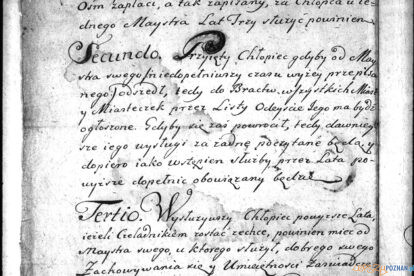 Osm zapłaci, a tak zapisany, za Chłopca u ied-
dnego Maystra Lat Trzy służyć powinien
Secundo. Przyięty Chłopiec gdyby od May-
stra swego niedopełniwszy czasu wyżey przepisa-
nego odszedł, tedy do Bractw, wszystkich Miast
y Miasteczek przez Listy Odeyście Jego ma bydź
ogłoszone. Gdyby się zaś powrocił, tedy dawniey-
sze iego wysługi za żadne poczytane będą, y
dopiero iako wstępien służby przez Lata po-
wyższe dopełnić obowiązany będzie
Tertio. Wysłużywszy Chłopiec powyższe Lata,
ieżeli Czeladnikiem zostać zechce, powinien mieć od
Maystra swego, u ktorego służył, dobrego swego
Zachowywania się y Umieiętności Zaświadcze-
POZNAN